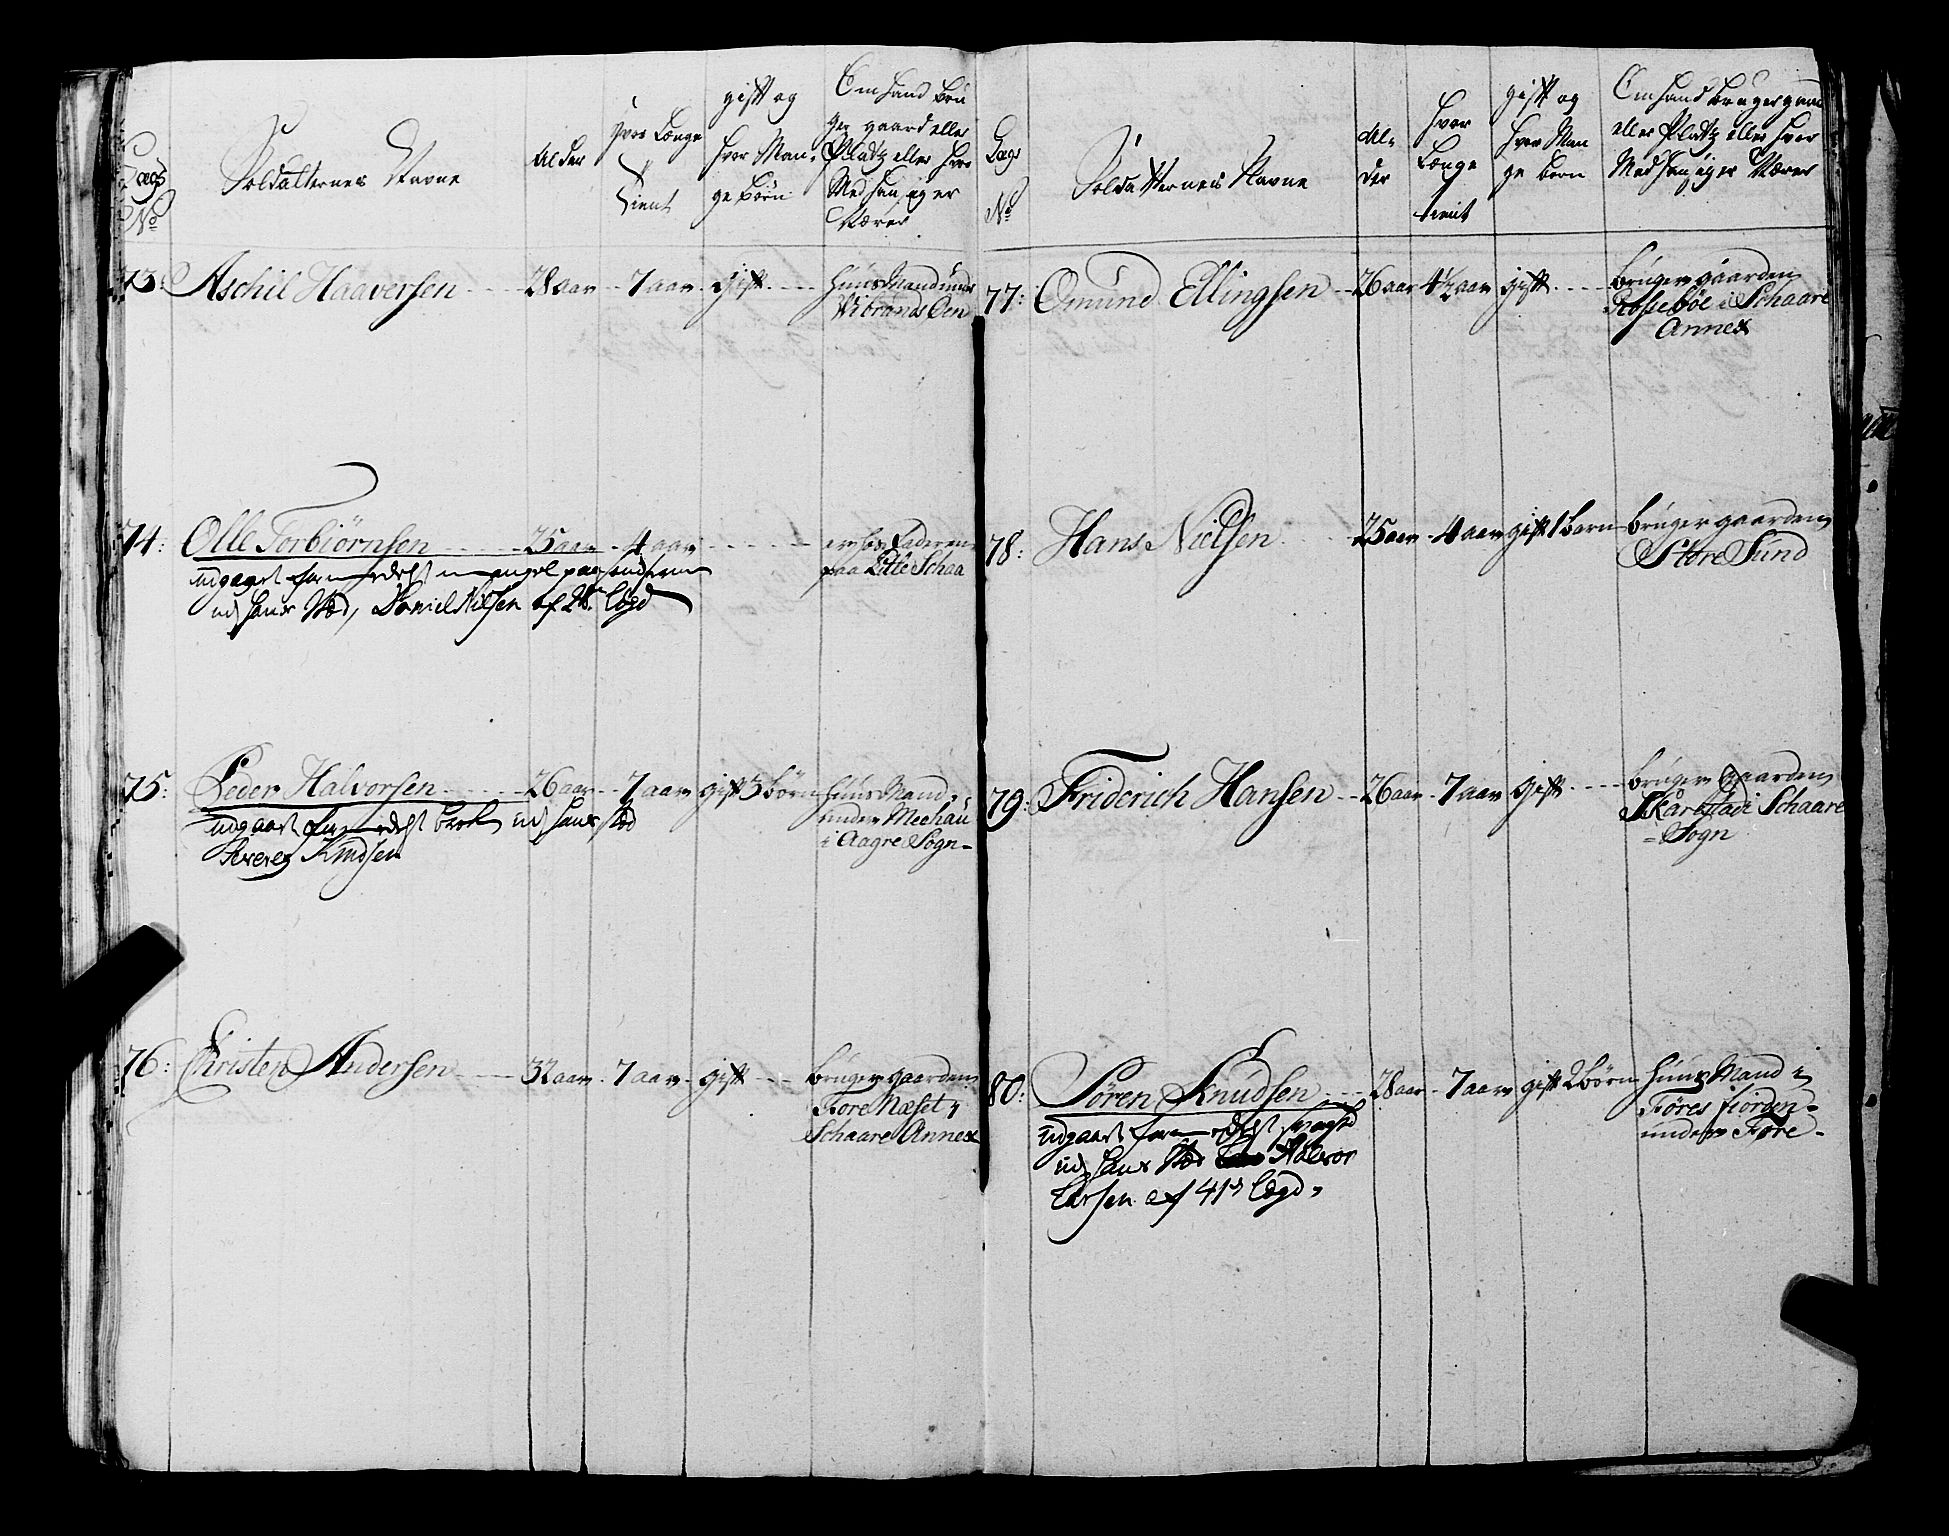 Lægs
No
Soldatternes Navne
Alder
Hvor Længe
Tient
gift og
hvor Man-
ge børn
Om hand bru
ger gaard eller
Platz eller hvor
Med han sig er
Nærer
73: Aschil Haaversen 28 aar 7 aar gift Huus Mand under
Vibrands Øen
74: Olle Torbiørnsen 25 aar 4 aar er hos Faderen
paa Litle Schaa
udgaaet formedelst mangel paa
hans Stæd, Daniel Nilsen af Lægd
75: Peder Halvorsen 26 aar 7 aar gift 3 børn Huus Mand
under Meehau
i Aagre Sogn
udgaaet formedelst brok hans stæd
Knudsen
76: Christen Andersen 32 aar 7 aar gift bruger gaarden
Føre Næset i
Schaare Annex
Lægs
No
Soldatternes Navne
Al-
der
hvor
Længe
tient
gift og
hvor Man
ge børn
Om hand bruger gaard
eller Platz eller hvor
Med han sig er Nærer
77: Omund Ellingsen 26 aar 4½ aar gift bruger gaarden
Rossebøe i Schaare
Annex
78: Hans Nielsen 25 aar 4 aar gift 1 barn bruger gaarden
Store Sund
79: Friderich Hansen 26 aar 7 aar gift bruger gaarden
i Schaare
Sogn
80: Sören Knudsen 28 aar 7 aar gift 2 børn Huus Mand i
Føres fiorden
under Føre
udgaaet formedelst svaghed
hans Stæd Halvor
Larsen af 41de Lægd